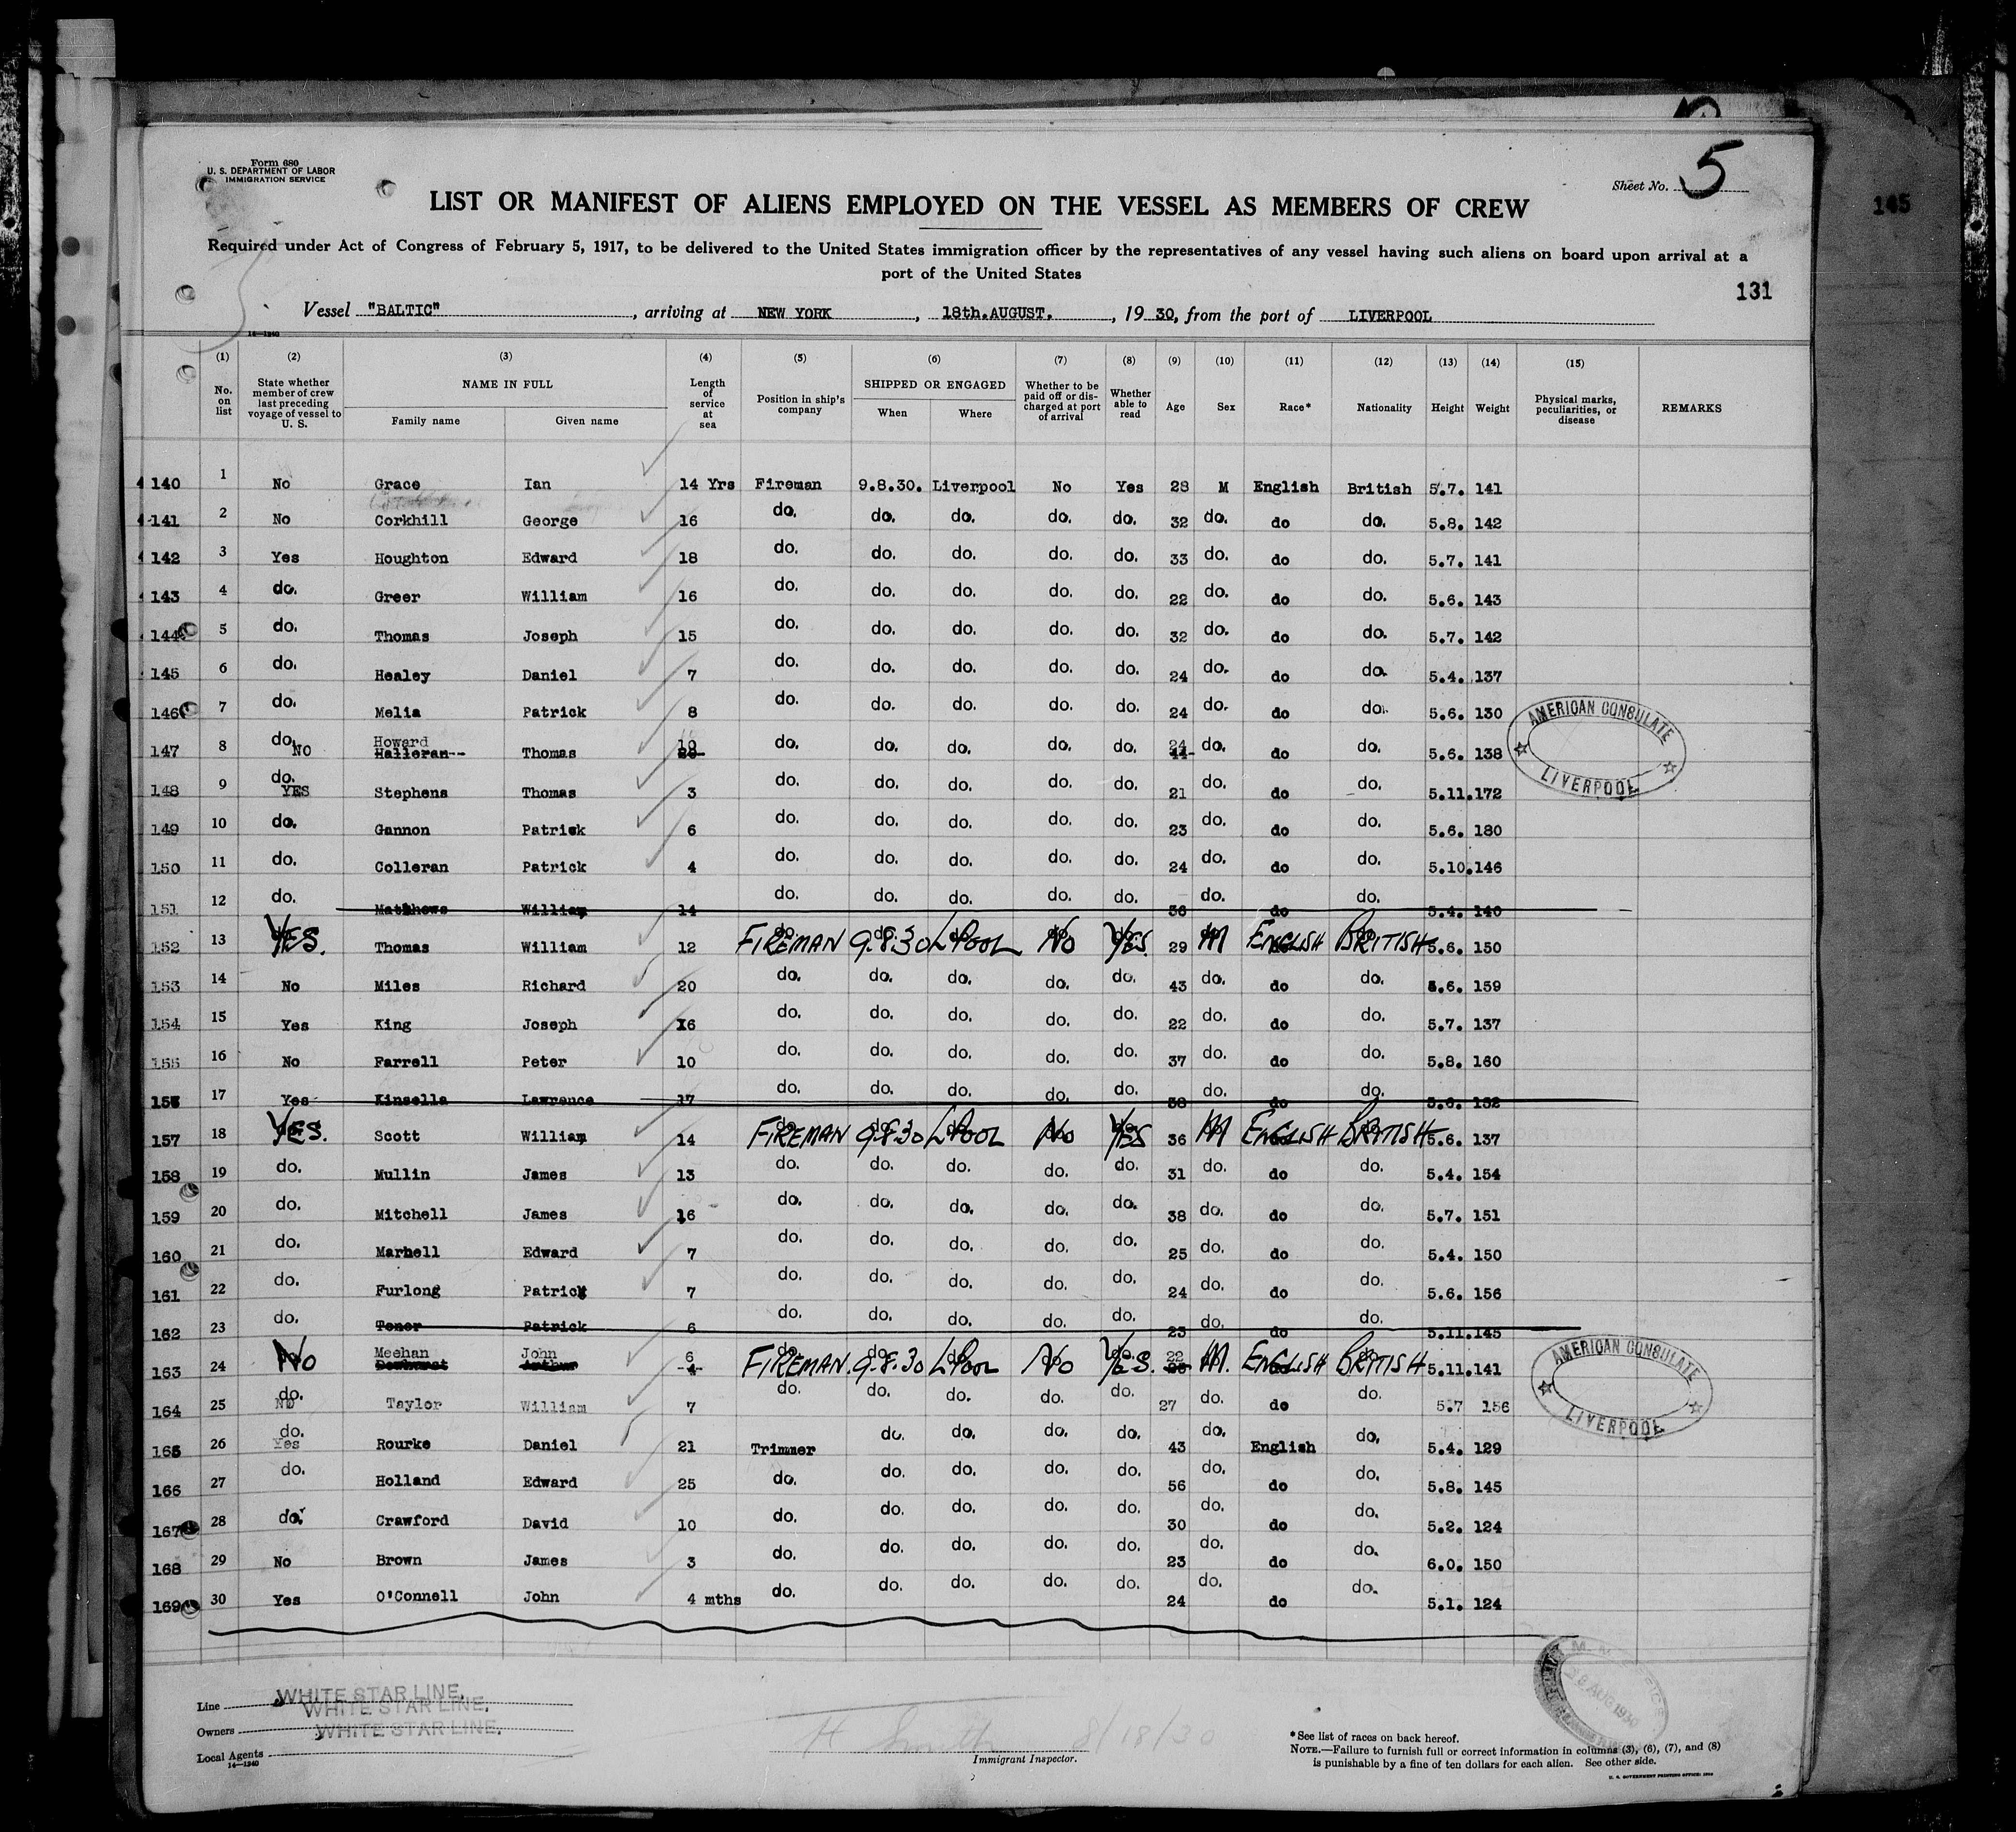 Form 680
U. S. DEPARTMENT OF LABOR
IMMIGRATION SERVICE
Sheet No. 5
145
LIST OR MANIFEST OF ALIENS EMPLOYED ON THE VESSEL AS MEMBERS OF CREW
Required under Act of Congress of February 5, 1917, to be delivered to the United States immigration officer by the representatives of any vessel having such aliens on board upon arrival at a
port of the United States
131
Vessel "BALTIC", arriving at NEW YORK, 18th.AUGUST., 19 30, from the port of LIVERPOOL
14—1240
(1) (2) (3) (4) (5) (6) (7) (8) (9) (10) (11) (12) (13) (14) (15)
No. on list State whether member of crew last preceding voyage of vessel to U. S. NAME IN FULL Family name Given name Length of service at sea Position in ship's company SHIPPED OR ENGAGED When Where Whether to be paid off or discharged at port of arrival Whether able to read Age Sex Race* Nationality Height Weight Physical marks, peculiarities, or disease REMARKS
140 1 No Grace Ian 14 Yrs Fireman 9.8.30. Liverpool No Yes 28 M English British 5.7. 141
141 2 No Corkhill George 16 do. do. do. do. do. 32 do. do do. 5.8. 142
142 3 Yes Houghton Edward 18 do. do. do. do. do. 33 do. do do. 5.7. 141
143 4 do. Greer William 16 do. do. do. do. do. 22 do. do do. 5.6. 143
144 5 do. Thomas Joseph 15 do. do. do. do. do. 32 do. do do. 5.7. 142
145 6 do. Healey Daniel 7 do. do. do. do. do. 24 do. do do. 5.4. 137
146 7 do. Melia Patrick 8 do. do. do. do. do. 24 do. do do. 5.6. 130
AMERICAN CONSULATE
LIVERPOOL
147 8 do. NO Howard Halleran-- Thomas 10 20 do. do. do. do. do. 24 44 do. do do. 5.6. 138
148 9 do. YES Stephens Thomas 3 do. do. do. do. do. 21 do. do do. 5.11. 172
149 10 do. Gannon Patrick 6 do. do. do. do. do. 23 do. do do. 5.6. 180
150 11 do. Colleran Patrick 4 do. do. do. do. do. 24 do. do do. 5.10. 146
151 12 do. Matthews William 14 do. do. do. do. do. 36 do. do do. 5.4. 140
152 13 YES. Thomas William 12 FIREMAN 9.8.30 L'POOL No YES. 29 M ENGLISH BRITISH 5.6. 150
153 14 No Miles Richard 20 do. do. do. do. do. 43 do. do do. 5.6. 159
154 15 Yes King Joseph 16 do. do. do. do. do. 22 do. do do. 5.7. 137
155 16 No Farrell Peter 10 do. do. do. do. do. 37 do. do do. 5.8. 160
156 17 Yes Kinsella Lawrence 17 do. do. do. do. do. 38 do. do do. 5.6. 132
157 18 YES. Scott William 14 FIREMAN 9.8.30 L'POOL No YES 36 M ENGLISH BRITISH 5.6. 137
158 19 do. Mullin James 13 do. do. do. do. do. 31 do. do do. 5.4. 154
159 20 do. Mitchell James 16 do. do. do. do. do. 38 do. do do. 5.7. 151
160 21 do. Marhell Edward 7 do. do. do. do. do. 25 do. do do. 5.4. 150
161 22 do. Furlong Patrick 7 do. do. do. do. do. 24 do. do do. 5.6. 156
162 23 do. Tener Patrick 6 do. do. do. do. do. 23 do. do do. 5.11. 145
163 24 No Meehan John 6 4 FIREMAN. 9.8.30 L'POOL No YES. 22 M. ENGLISH BRITISH 5.11. 141
AMERICAN CONSULATE
LIVERPOOL
164 25 do. NO Taylor William 7 do. do. do. do. do. 27 do. do do. 5.7 156
165 26 do. Yes Rourke Daniel 21 Trimmer do. do. do. do. 43 do. English do. 5.4. 129
166 27 do. Holland Edward 25 do. do. do. do. do. 56 do. do do. 5.8. 145
167 28 do. Crawford David 10 do. do. do. do. do. 30 do. do do. 5.2. 124
168 29 No Brown James 3 do. do. do. do. do. 23 do. do do. 6.0. 150
169 30 Yes O'Connell John 4 mths do. do. do. do. do. 24 do. do do. 5.1. 124
Line WHITE STAR LINE.
Owners WHITE STAR LINE.
Local Agents WHITE STAR LINE.
14—1240
H Smith 8/18/30
Immigrant Inspector.
AUG 1930
*See list of races on back hereof.
NOTE.—Failure to furnish full or correct information in columns (3), (6), (7), and (8)
is punishable by a fine of ten dollars for each alien. See other side.
U. S. GOVERNMENT PRINTING OFFICE: